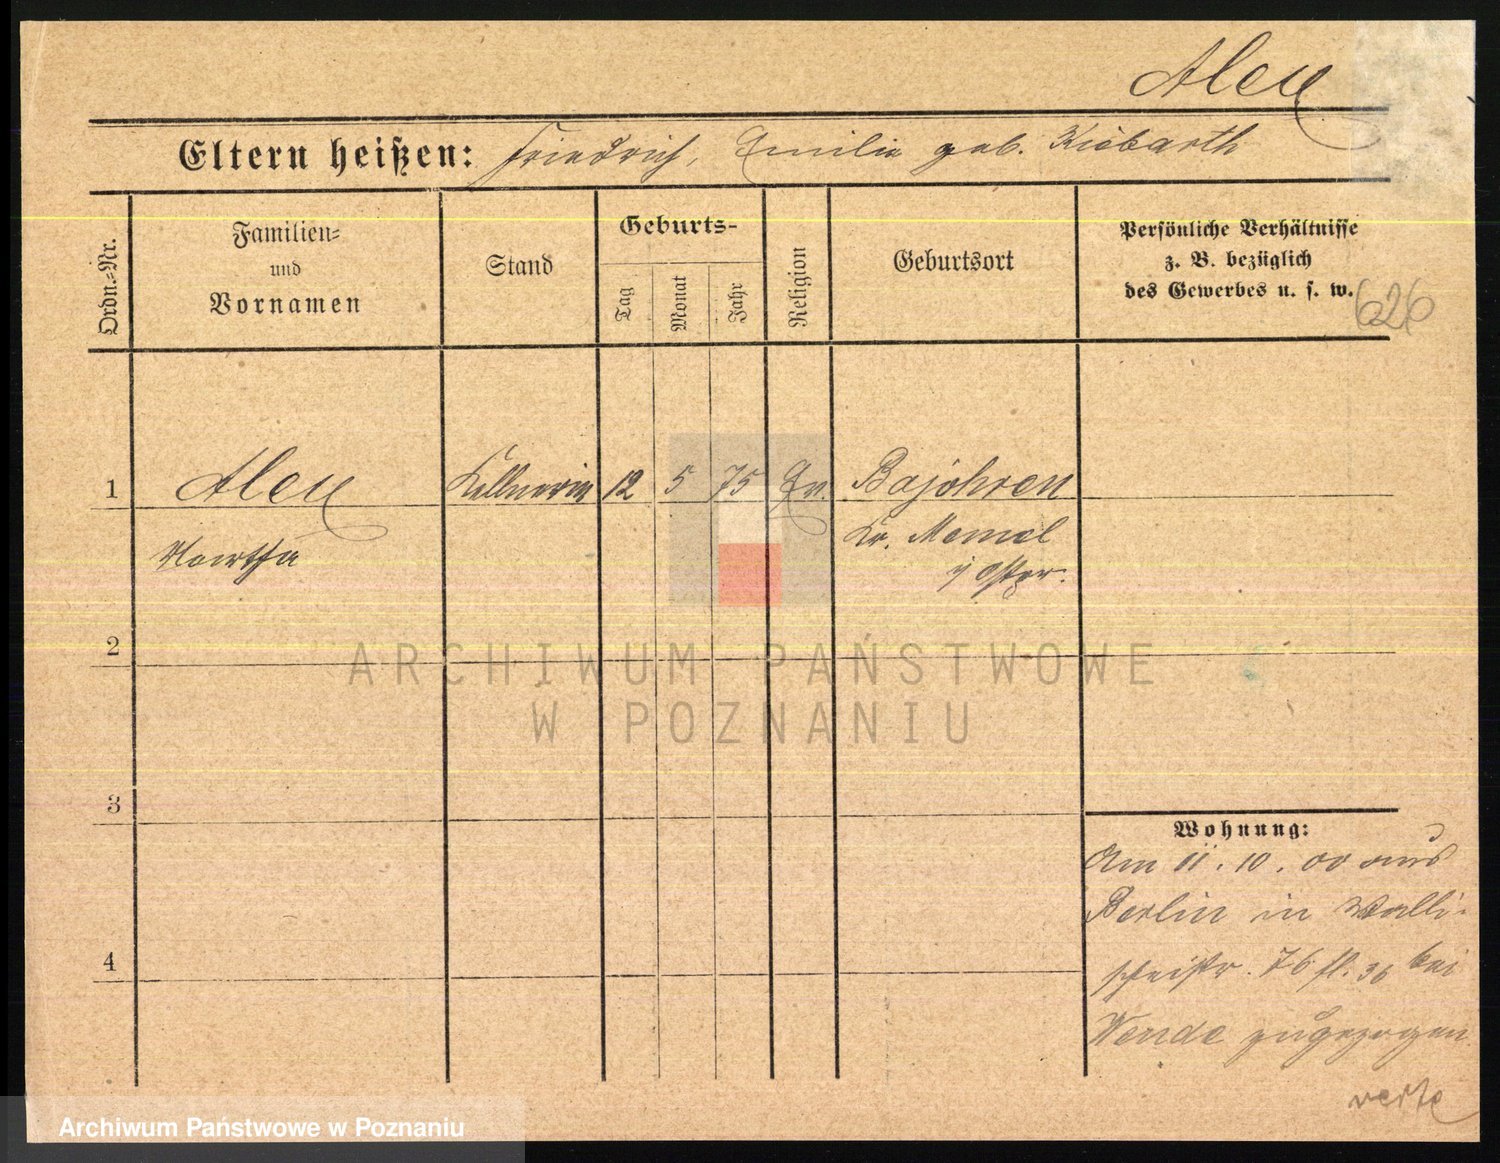 Aley
Eltern heißen: Friedrich, Emilie geb. Kiobarth
Ordn.-Nr.
Familien-
und
Vornamen
Stand
Geburts-
Tag
Monat
Jahr
Religion
Geburtsort
Persönliche Verhältnisse
z. B. bezüglich
des Gewerbes u. s. w.
626
1 Aley Kellnerin 12 5 75 Ev. Bajohren
Martha Kr. Memel
i/ Ostpr.
2
3
4
Wohnung:
Am 11. 10. 00 aus
Berlin in Walli-
scheistr. 76 fl. 36 bei
Wende zugezogen
verte
ARCHIWUM PAŃSTWOWE
W POZNANIU
Archiwum Państwowe w Poznaniu